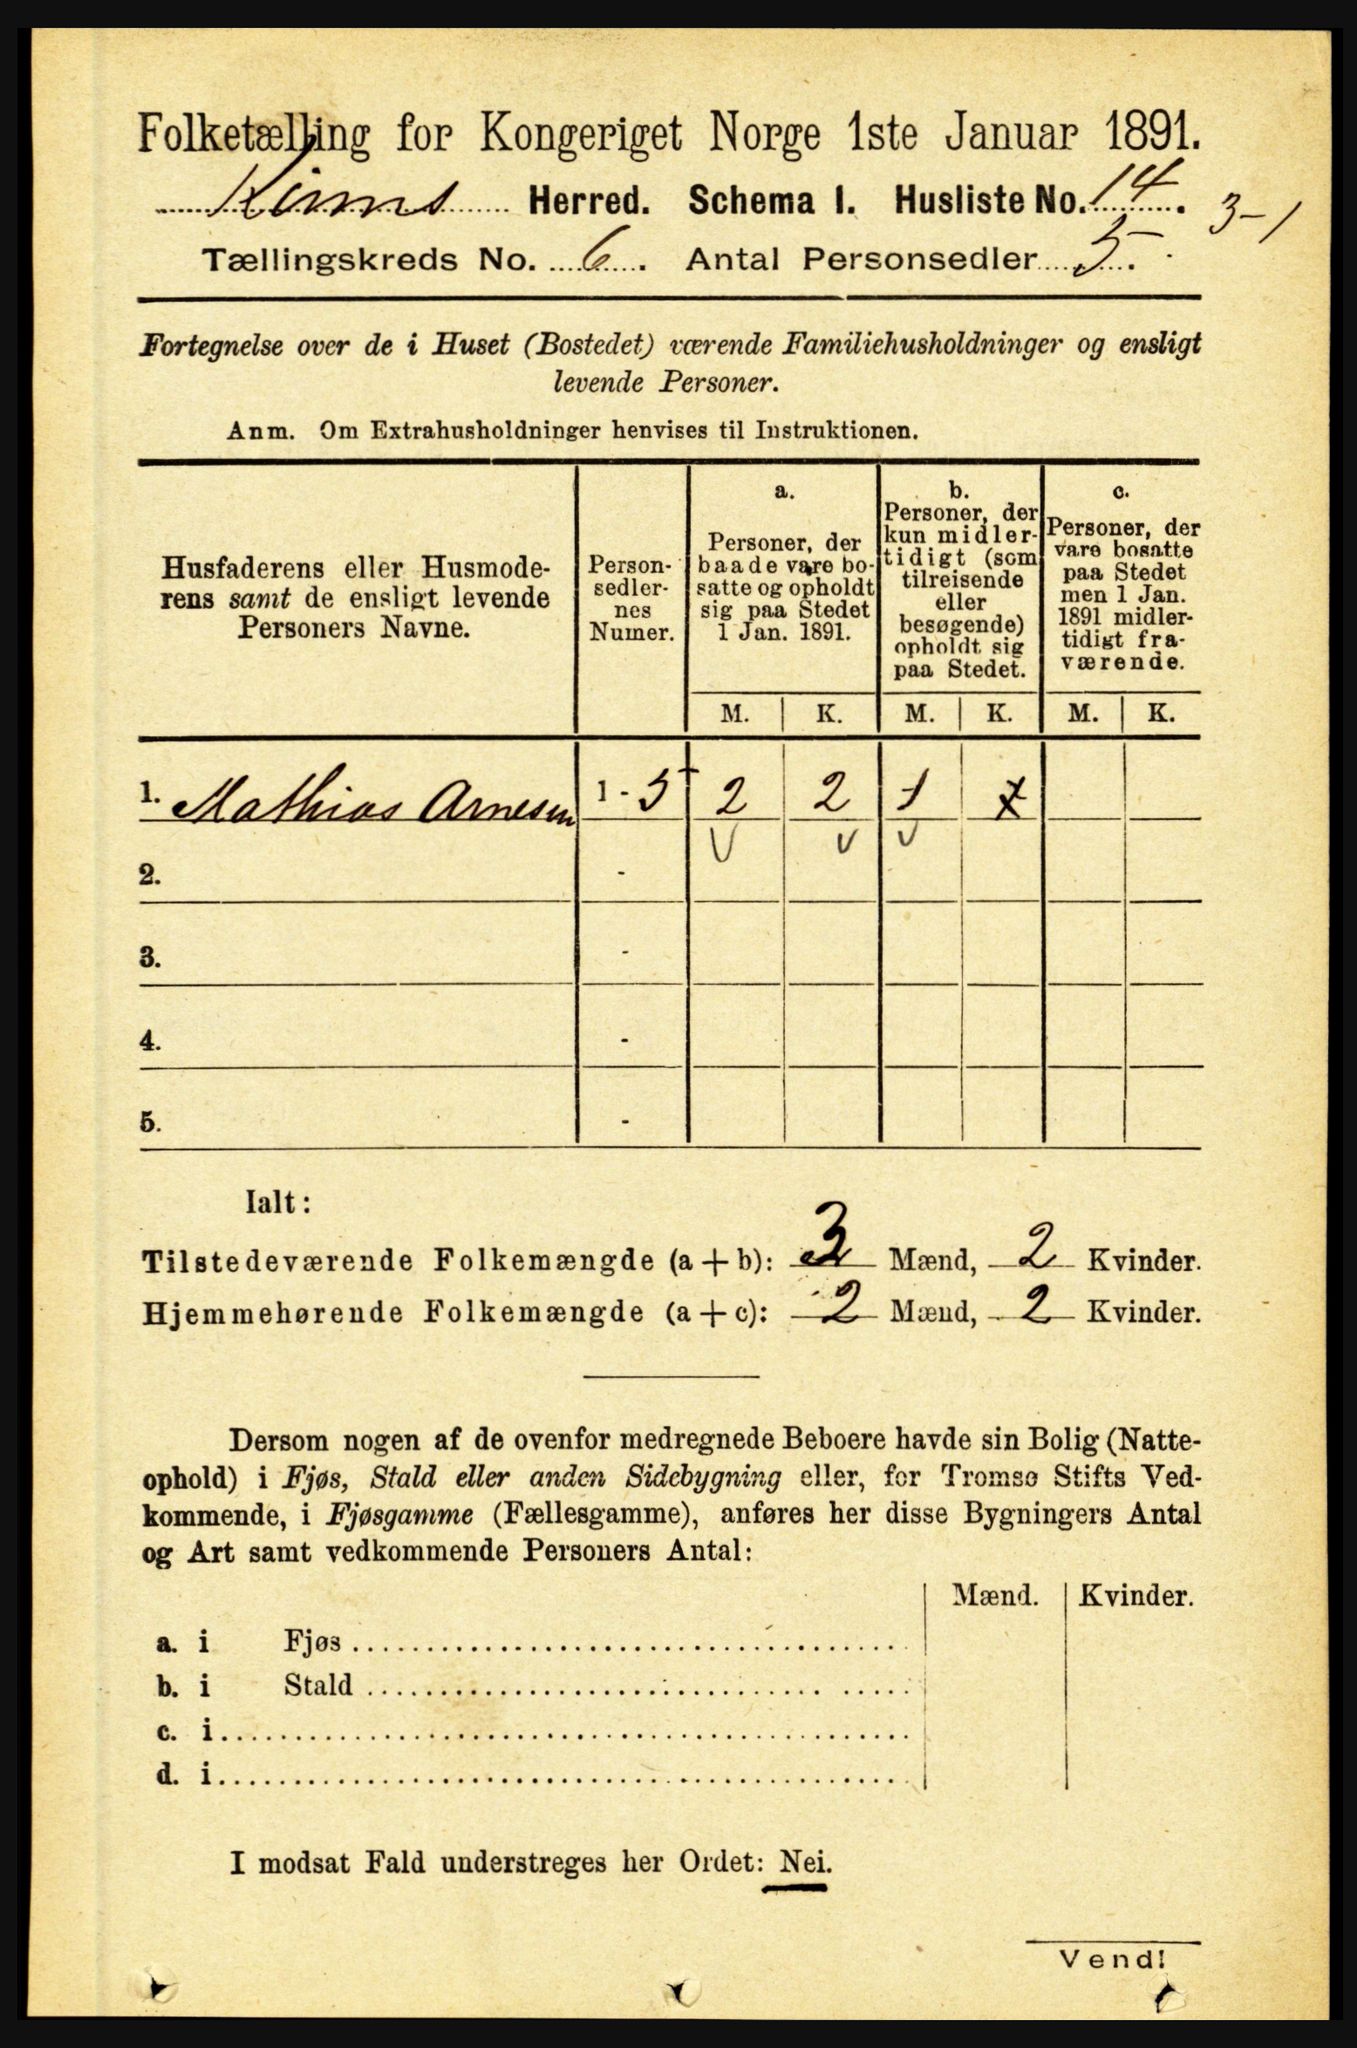 Folketælling for Kongeriget Norge 1ste Januar 1891.
Kinns Herred. Schema I. Husliste No. 14.
3-1
Tællingskreds No. 6. Antal Personsedler 5.
Fortegnelse over de i Huset (Bostedet) værende Familiehusholdninger og ensligt
levende Personer.
Anm. Om Extrahusholdninger henvises til Instruktionen.
Husfaderens eller Husmode-
rens samt de ensligt levende
Personers Navne.
Person-
sedler-
nes
Numer.
a.
Personer, der
baade vare bo-
satte og opholdt
sig paa Stedet
1 Jan. 1891.
b.
Personer, der
kun midler-
tidigt (som
tilreisende
eller
besøgende)
opholdt sig
paa Stedet.
c.
Personer, der
vare bosatte
paa Stedet
men 1 Jan.
1891 midler-
tidigt fra-
værende.
M. K. M. K. M. K.
1. Mathias Arnesen 1 - 5 2 2 1
2. -
3. -
4. -
5. -
Ialt:
Tilstedeværende Folkemængde (a + b): 3 Mænd, 2 Kvinder.
Hjemmehørende Folkemængde (a + c): 2 Mænd, 2 Kvinder.
Dersom nogen af de ovenfor medregnede Beboere havde sin Bolig (Natte-
ophold) i Fjøs, Stald eller anden Sidebygning eller, for Tromsø Stifts Ved-
kommende, i Fjøsgamme (Fællesgamme), anføres her disse Bygningers Antal
og Art samt vedkommende Personers Antal:
Mænd. Kvinder.
a. i Fjøs
b. i Stald
c. i
d. i
I modsat Fald understreges her Ordet: Nei.
Vend!